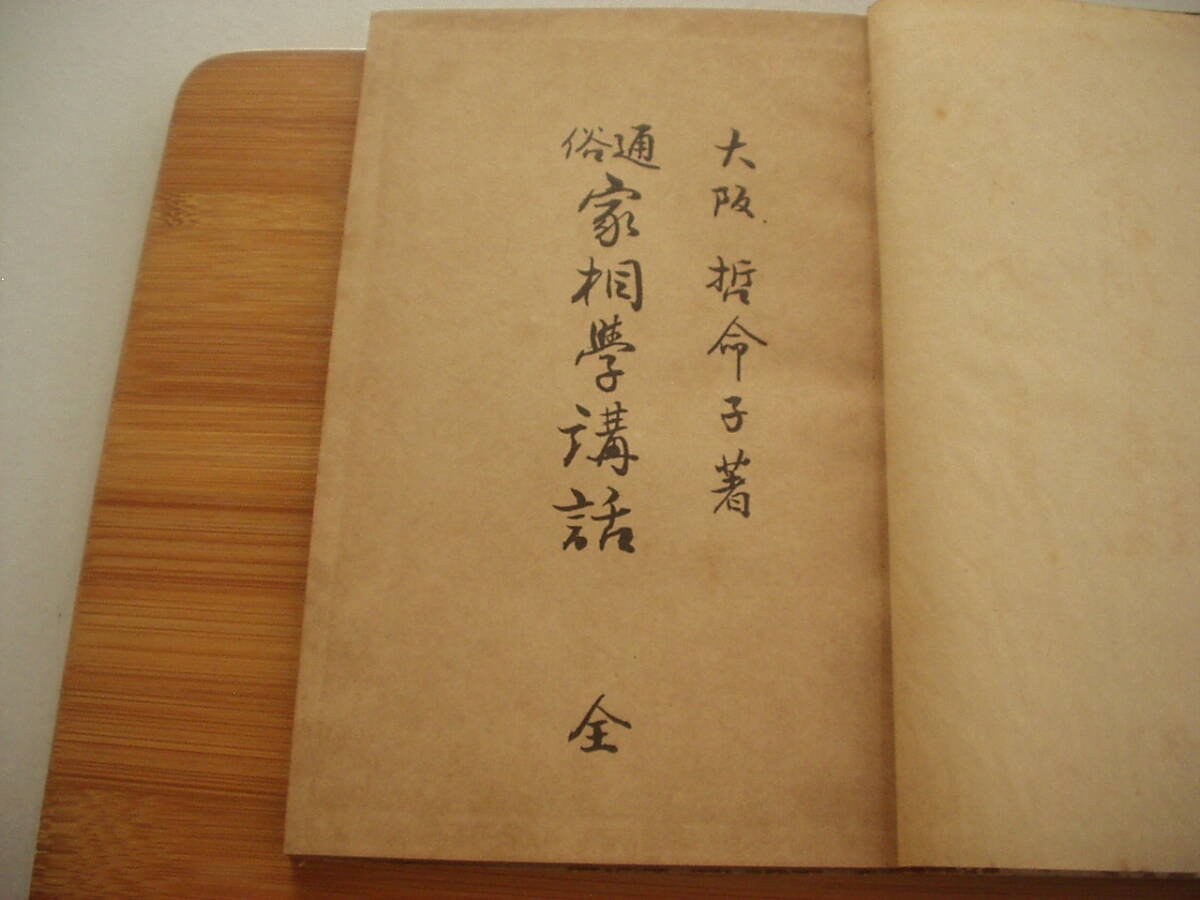 大阪 哲命子著
通俗 家相學講話 全